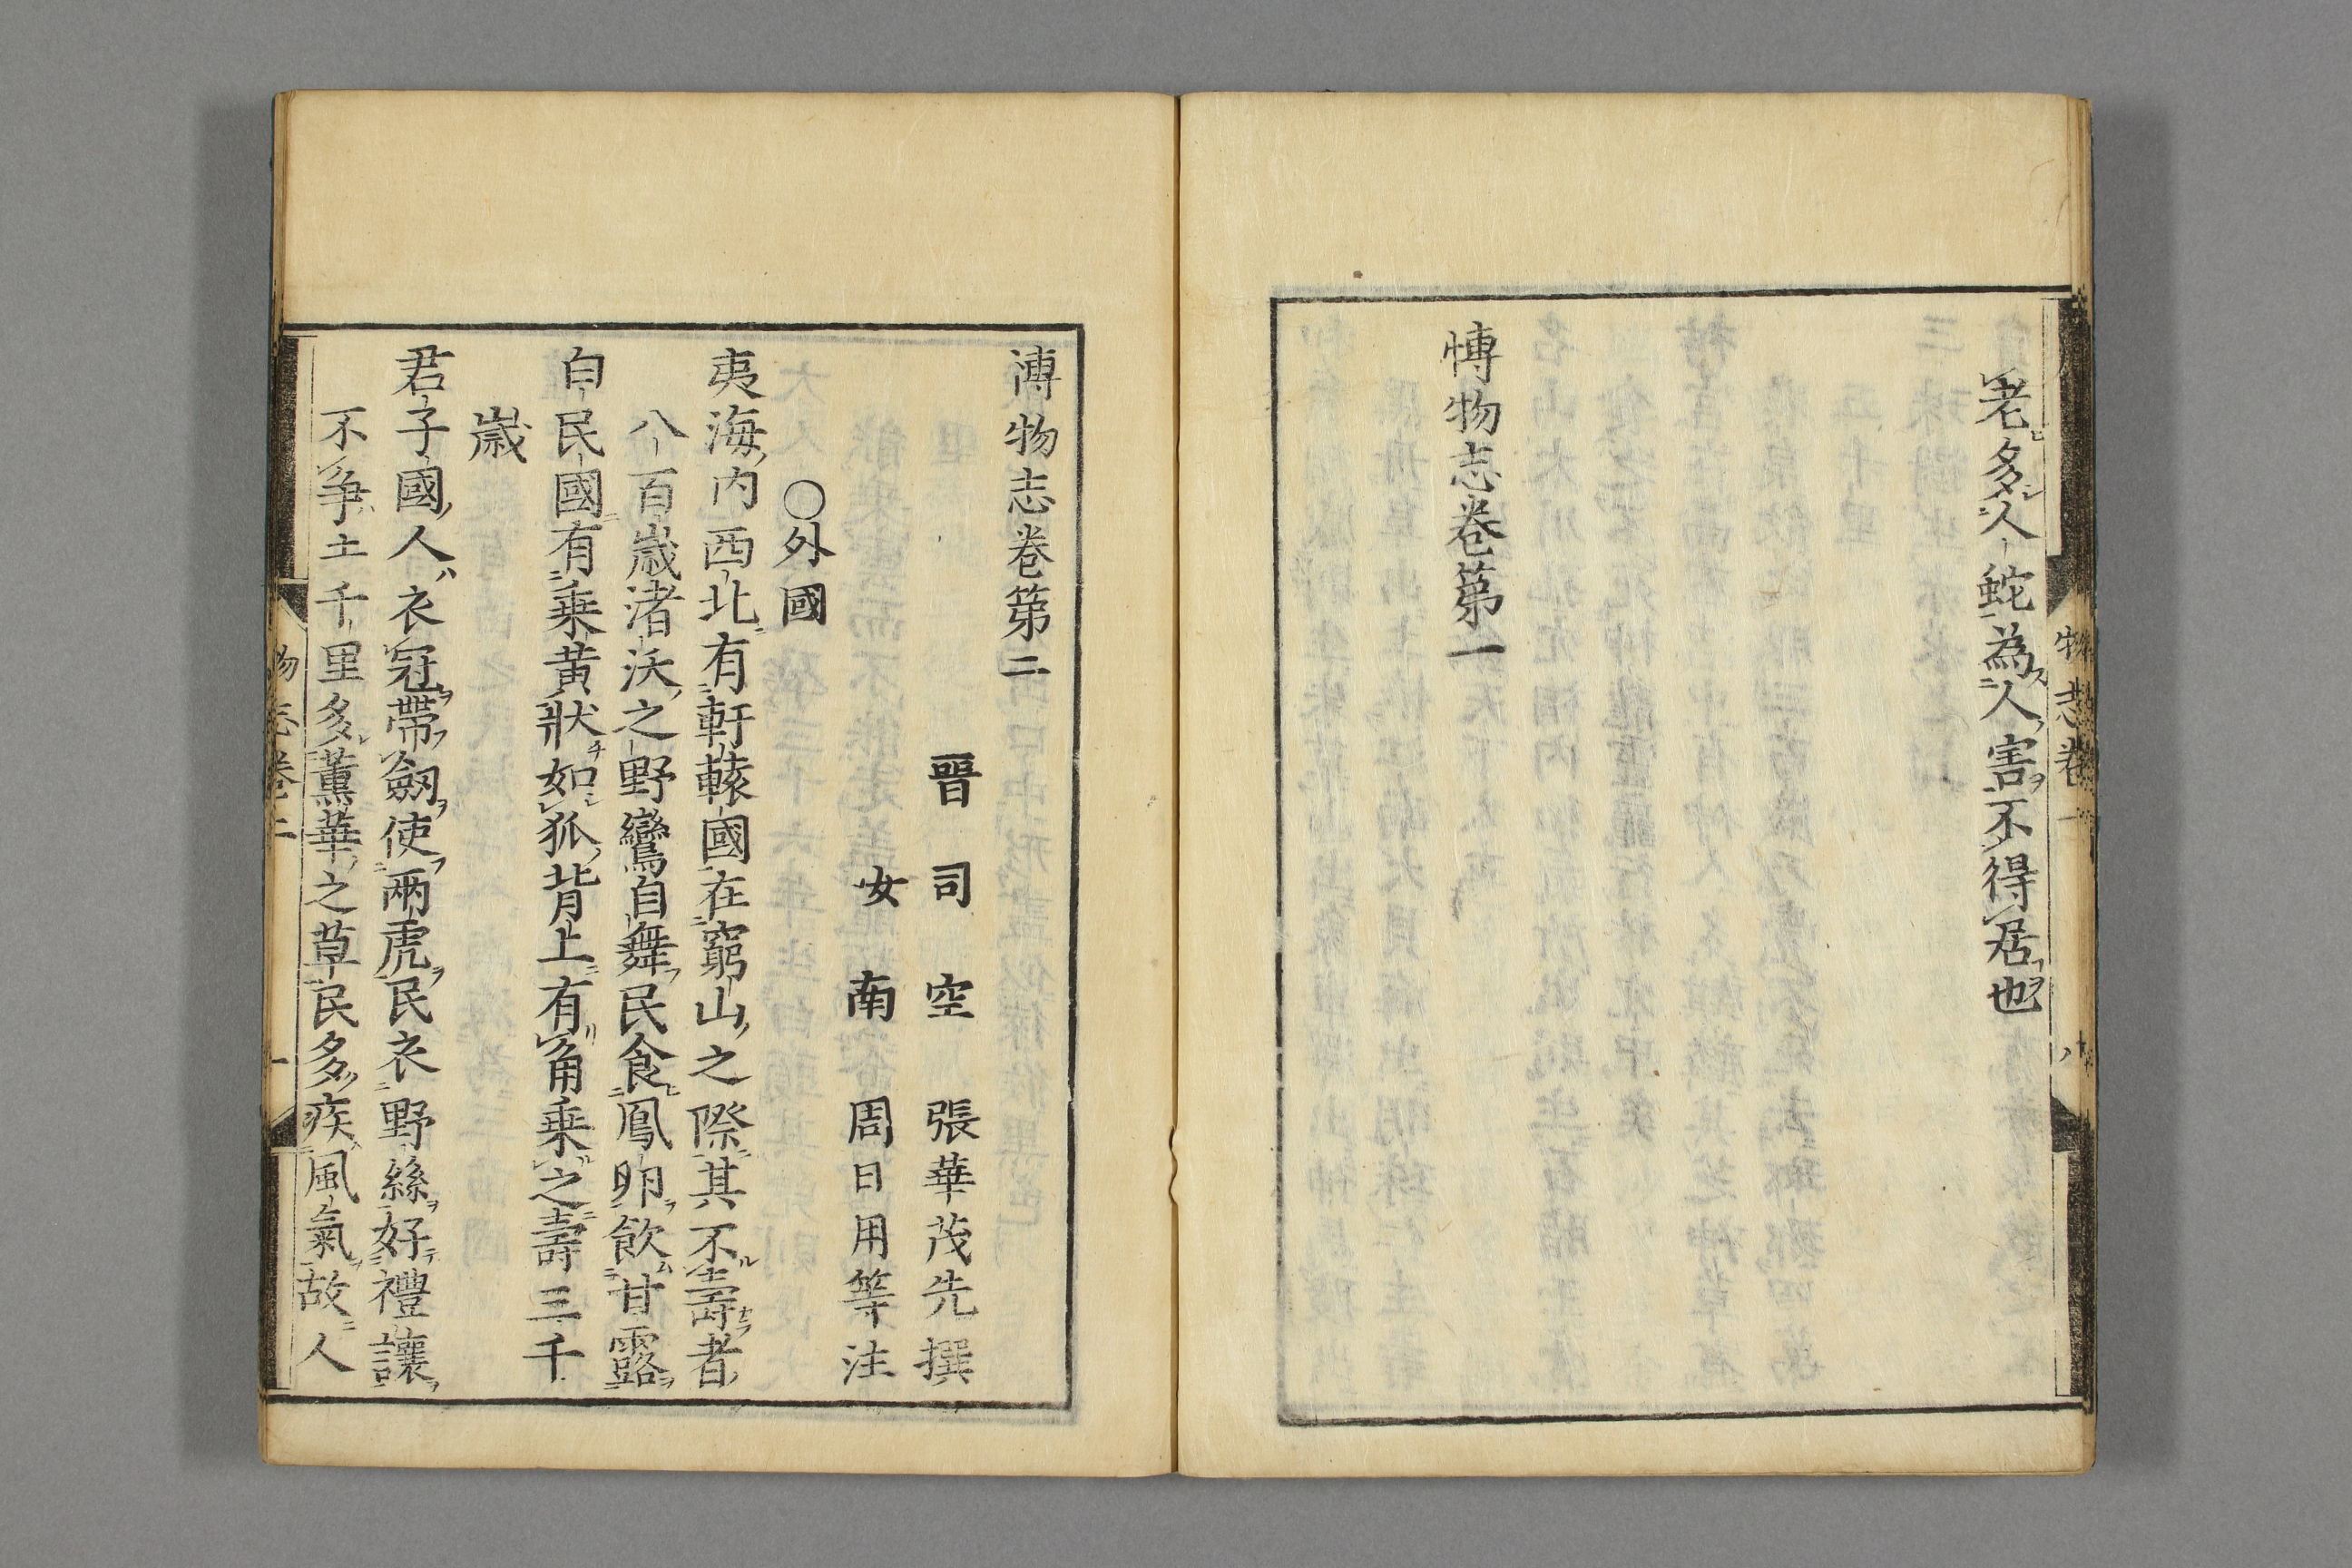 老多人蛇為人害不得居也
愽物志卷第一
物志卷一
溥物志卷第二
晋司空張華茂先撰
女南周日用等注
○外國
夷海内西北有軒轅國在窮山之際其不壽者
八百歲渚沃之野鸞自舞民食鳳卵飲甘露
白民國有乗黃狀如狐背上有角乗之壽三千
歲
君子國人衣冠帶劔使兩虎民衣野絲好禮讓
不爭土千里多薰華之草民多疾風氣故人
物志卷二
一